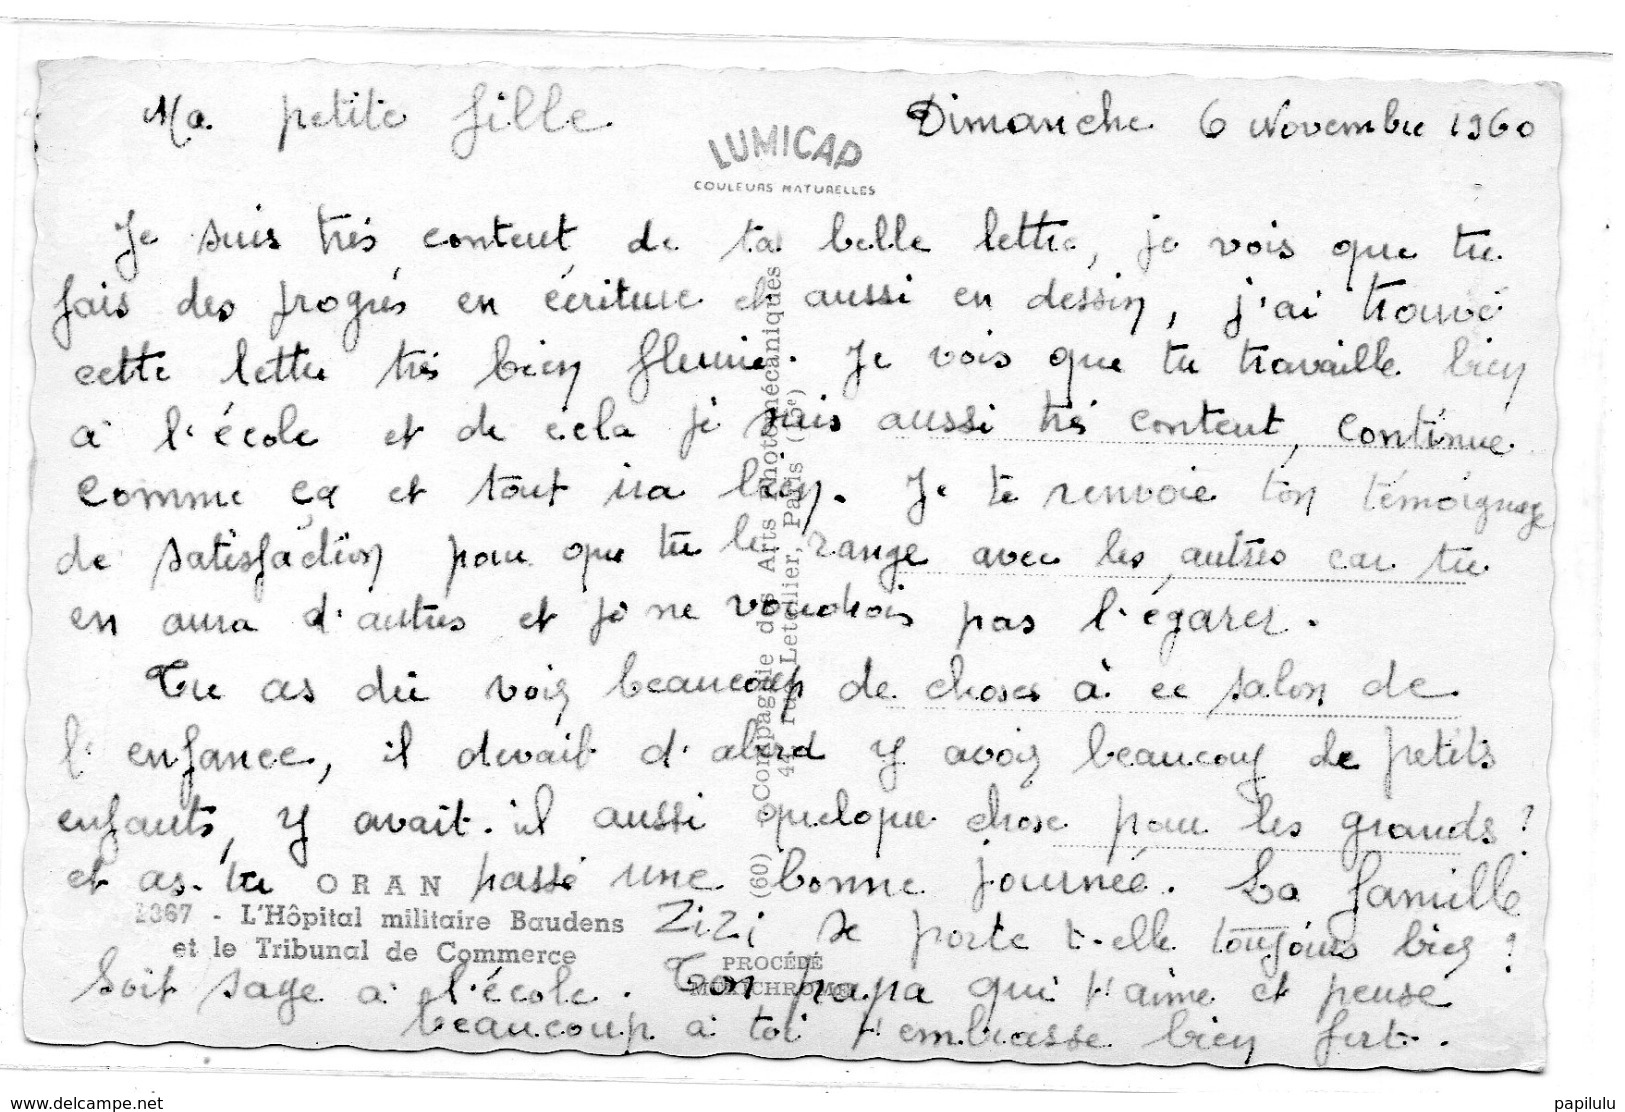 Ma petite fille
Dimanche 6 Novembre 1960
LUMICAP
COULEURS NATURELLES
Je suis très content de ta belle lettre, je vois que tu
fais des progrès en écriture et aussi en dessin, j'ai trouvé
cette lettre très bien fleurie. Je vois que tu travaille bien
à l'école et de cela je suis aussi très content, continue
comme ça et tout ira bien. Je te renvoie ton témoignage
de satisfaction pour que tu le range avec les autres car tu
en aura d'autres et je ne voudrais pas l'égarer.
Tu as dû voir beaucoup de choses à ce salon de
l'enfance, il devait d'abord y avoir beaucoup de petits
enfants, y avait-il aussi quelque chose pour les grands ?
et as-tu passé une bonne journée. La famille
Zizi se porte t-elle toujours bien ?
Soit sage à l'école. Ton papa qui t'aime et pense
beaucoup à toi t'embrasse bien fort.
ORAN
2367 - L'Hôpital militaire Baudens
et le Tribunal de Commerce
(60) Compagnie des Arts Photomécaniques
44, rue Letellier, Paris (15e)
PROCÉDÉ
www.delcampe.net
papilulu